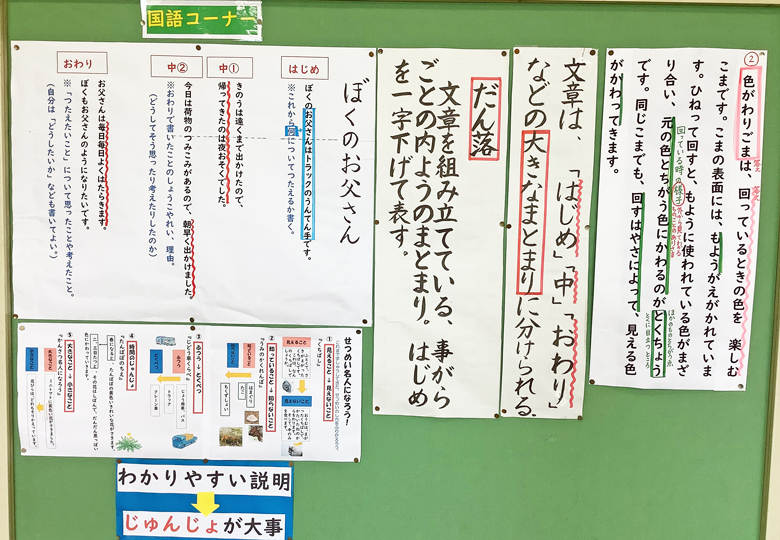 国語コーナー
②
色がわりごまは、回っているときの色を 楽しむ
こまです。こまの表面には、もようがえがかれていま
す。ひねって回すと、もように使われている色がまざ
り合い、元の色とちがう色にかわるのがとくちょう
です。同じこまでも、回すはやさによって、見える色
がかわってきます。
回っている時の様子
文章は、「はじめ」「中」「おわり」
などの大きなまとまりに分けられる。
だん落
文章を組み立てている、事がら
ごとの内ようのまとまり。はじめ
を一字下げて表す。
ぼくのお父さん
はじめ
ぼくのお父さんはトラックのうんてん手です。
中①
きのうは遠くまで出かけたので、
帰ってきたのは夜おそくでした。
中②
今日は荷物のつみこみがあるので、朝早く出かけました。
※おわりで書いたことのしょうこやれい、理由。
(どうしてそう思ったり考えたりしたのか)
おわり
お父さんは毎日毎日よくはたらきます。
ぼくもお父さんのようになりたいです。
※「つたえたいこと」について思ったことや考えたこと。
(自分は「どうしたいか」なども書いてよい。)
せつめい名人になろう!
①見えること→見えないこと
「くちばし」
②知っていること→知らないこと
「うみのかくれんぼ」
③ふつう→とくべつ
「じどう車くらべ」
④時間のじゅんじょ
「たんぽぽのちえ」
⑤大きなこと→小さなこと
「かんさつ名人になろう」
わかりやすい説明
じゅんじょが大事